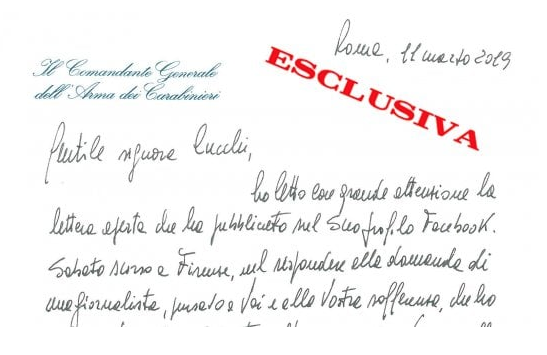 Roma, 11 marzo 2019
ESCLUSIVA
Il Comandante Generale
dell'Arma dei Carabinieri
Gentile signora Cucchi,
ho letto con grande attenzione la
lettera aperta che ha pubblicato sul Suo profilo Facebook.
Sabato scorso a Firenze, nel rispondere alla domanda di
una giornalista, pensavo a Voi e alla Vostra sofferenza, che ho